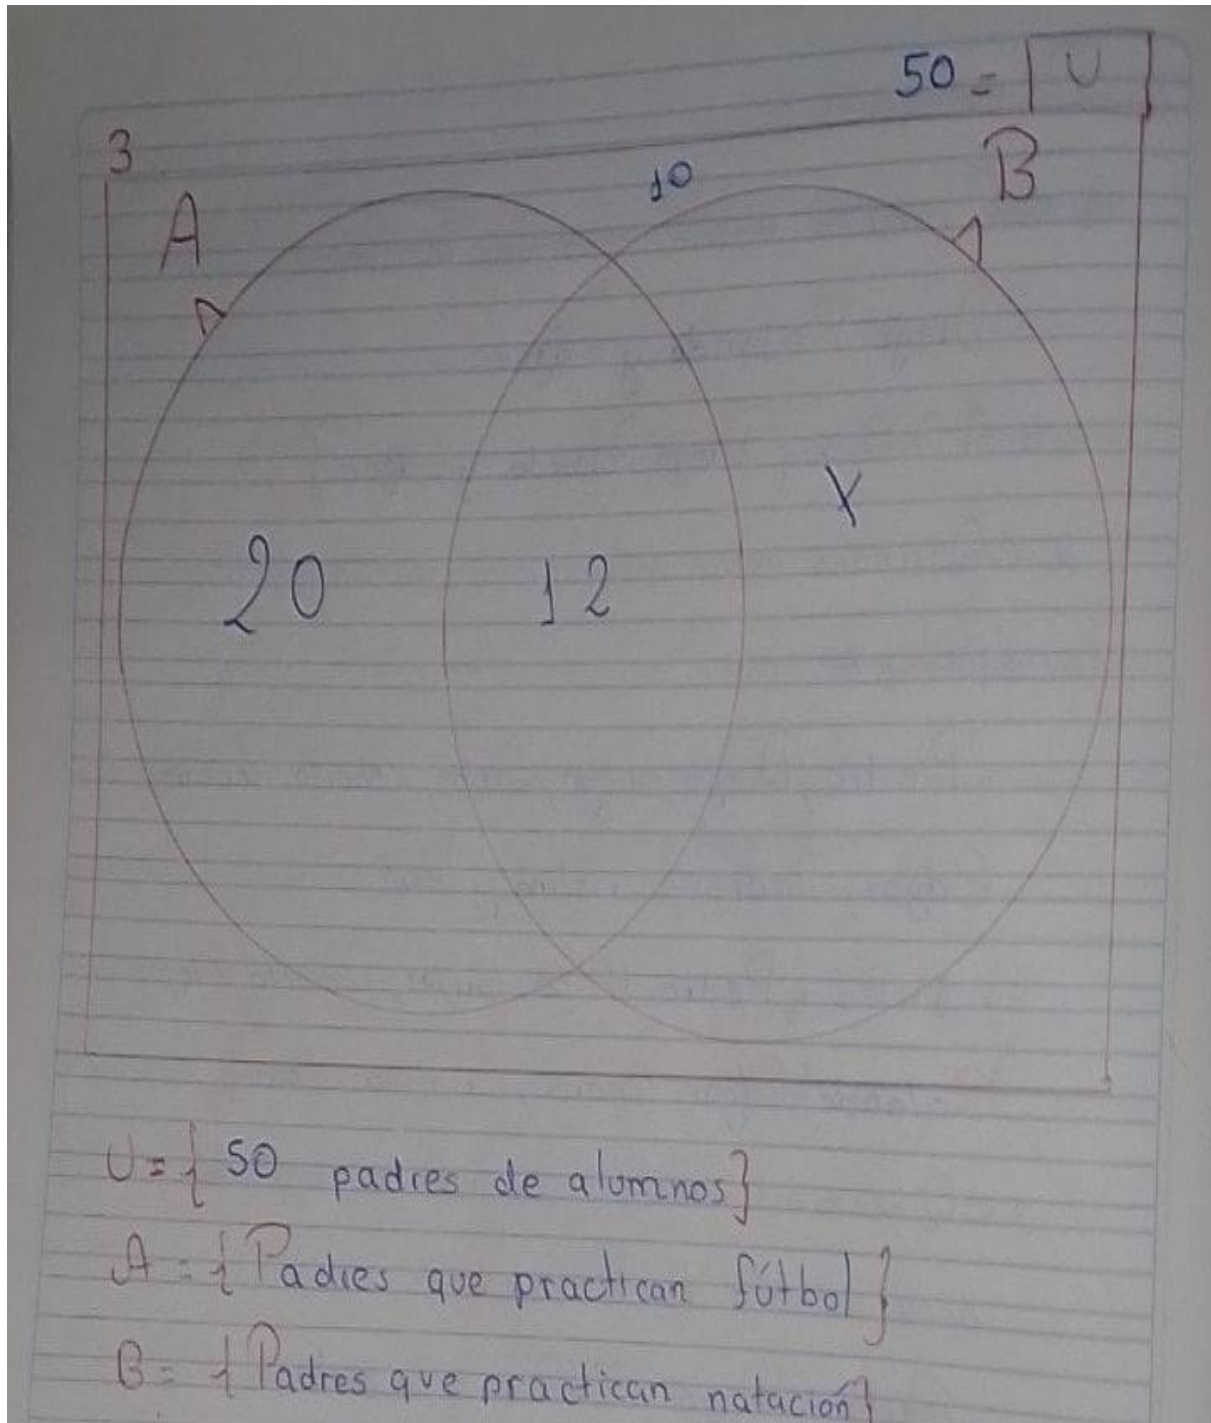 50 = U
3
A
10
B
20
12
X
U = { 50 padres de alumnos}
A = { Padres que practican fútbol }
B = { Padres que practican natación}